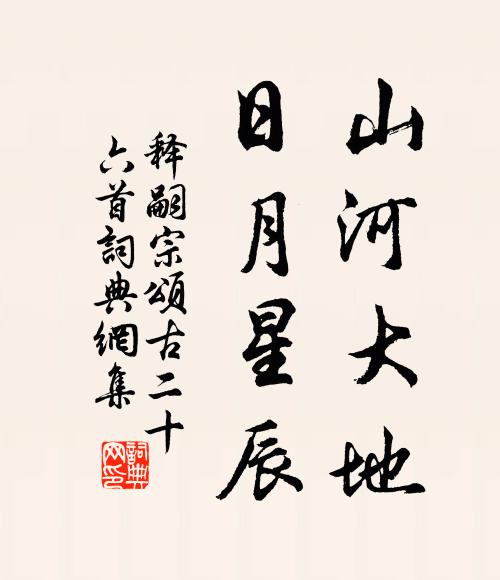 山河大地
日月星辰
释嗣宗頌古二十
六首詞典網集
詞典
网印